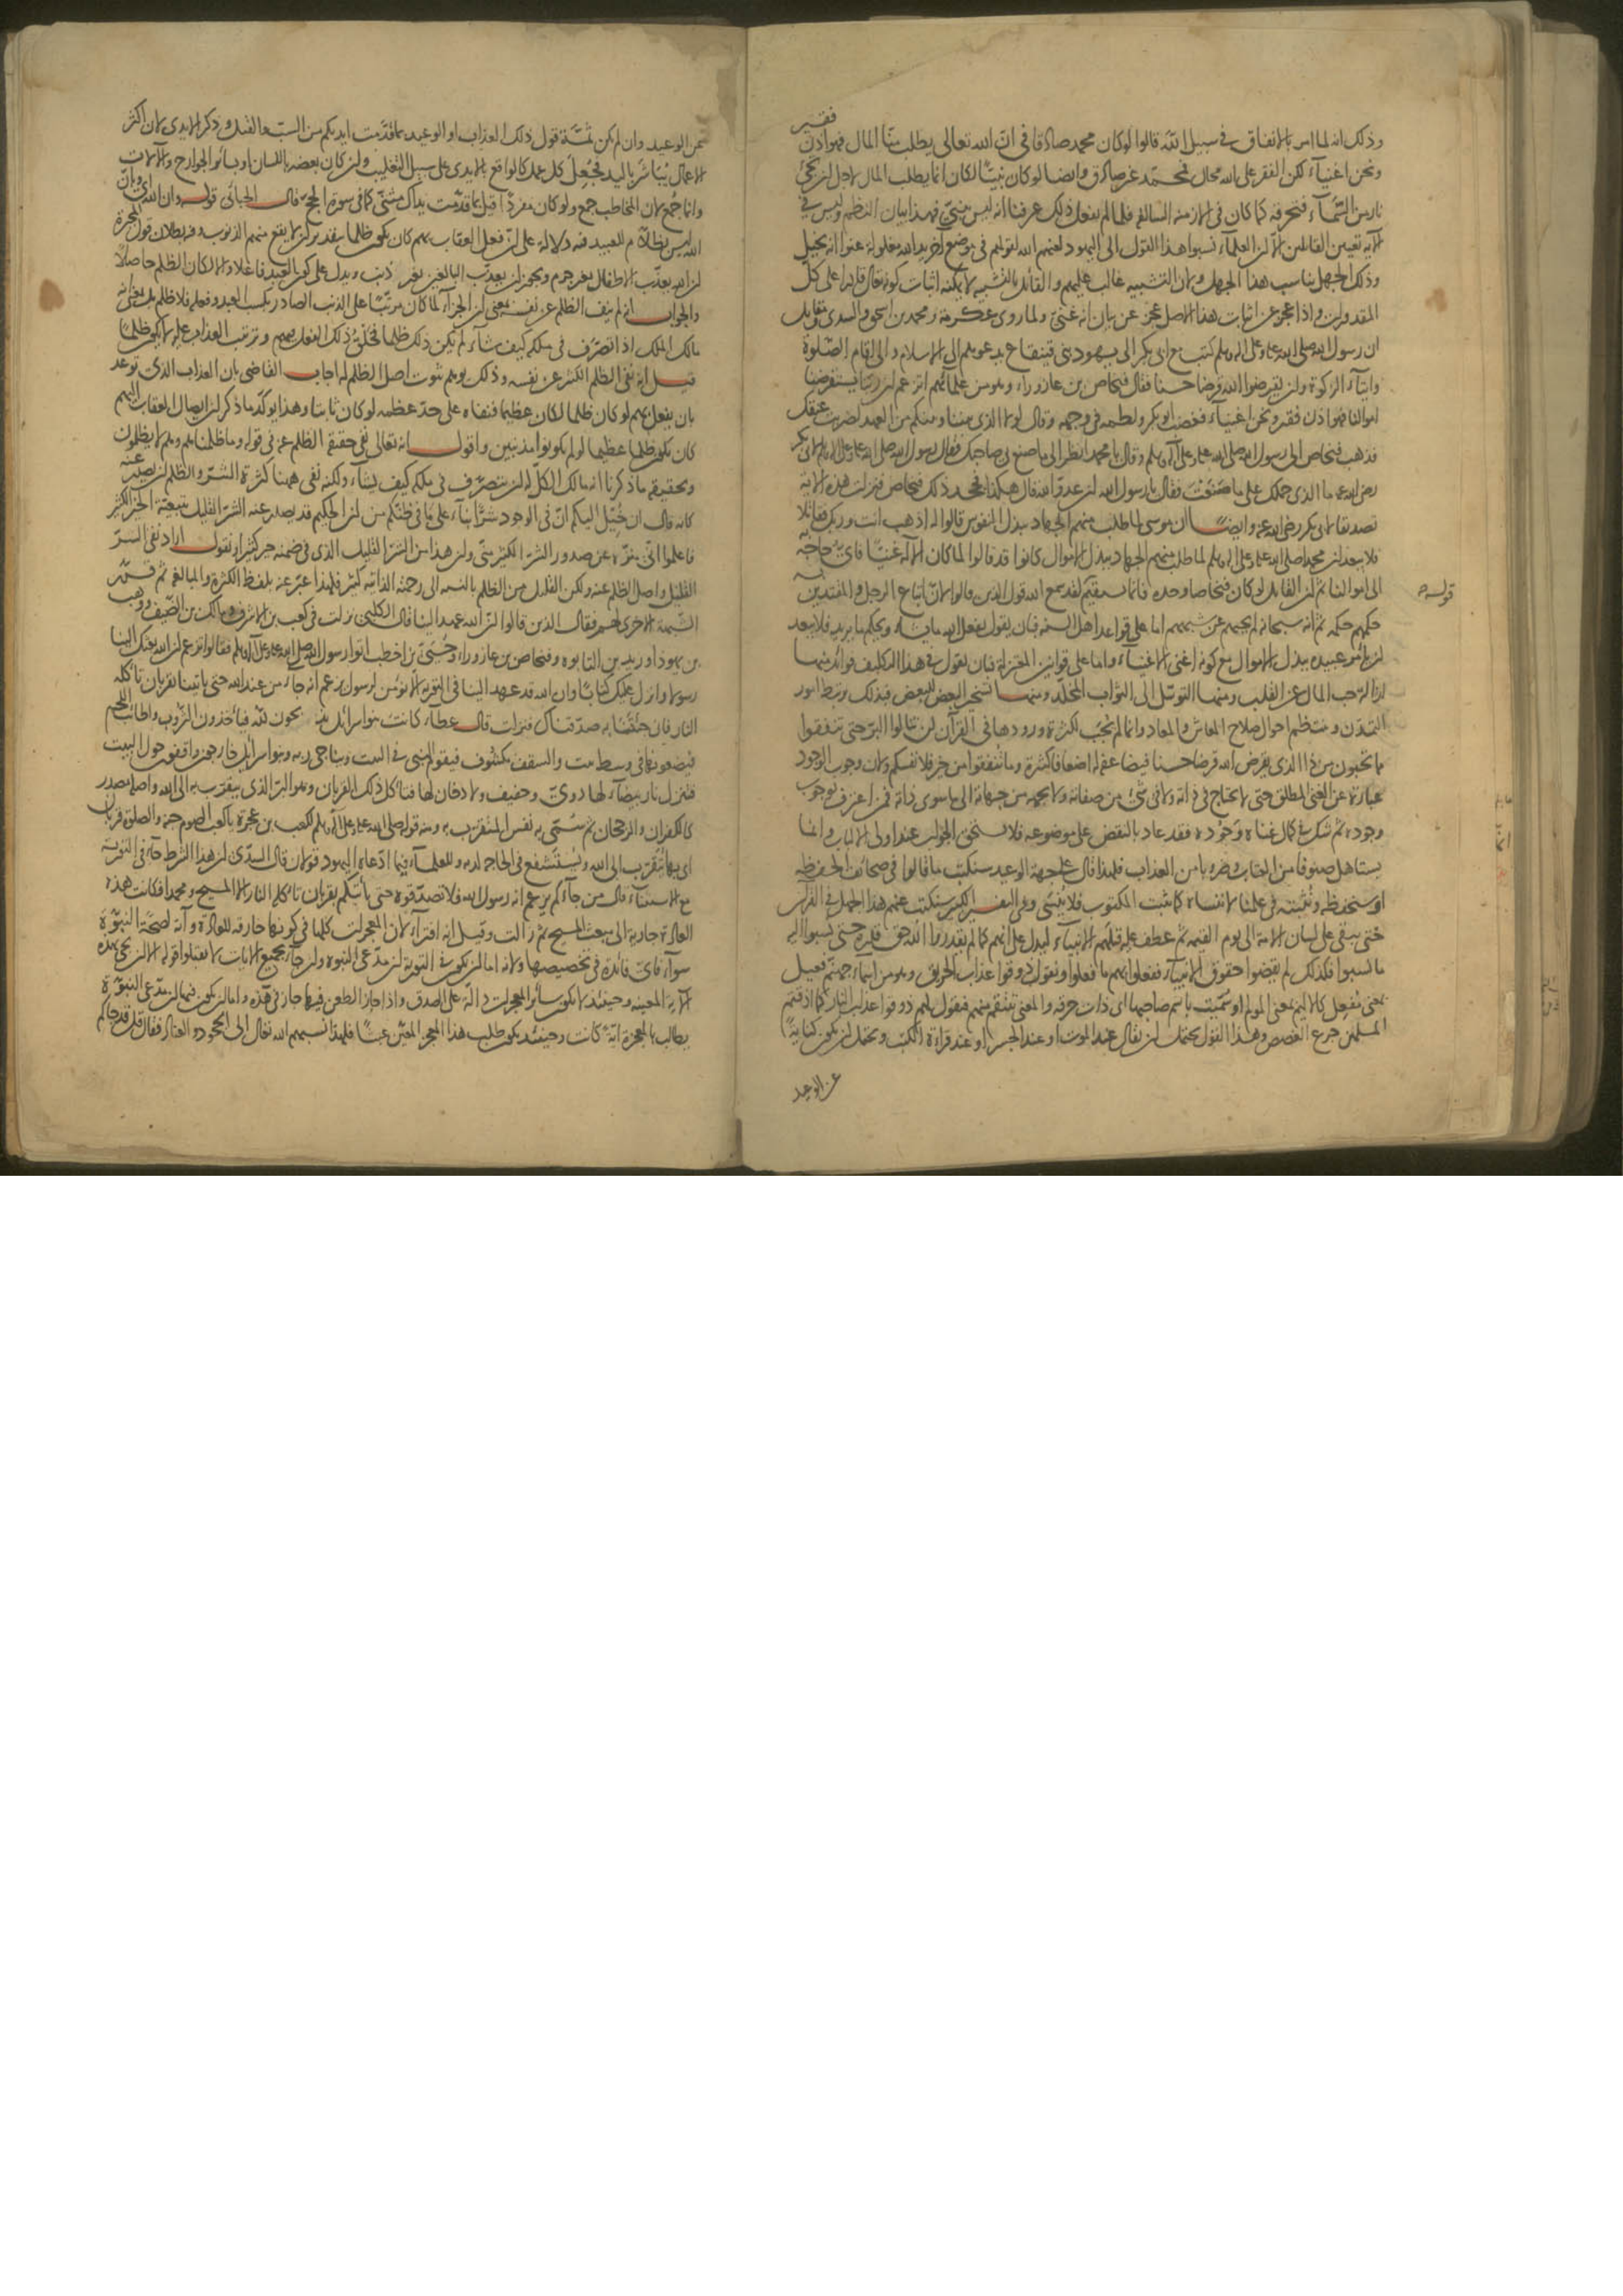 وذلك انه لما امر بالانفاق في سبيل الله قالوا لو كان محمد صادقا في ان الله تعالى يطلب منا المال فهو اذن فقير
ونحن اغنياء لكن الفقر على الله محال فمحمد غير صادق وايضا لو كان نبيا لكان انما يطلب المال لاجل ان تجئ
نار من السماء فتحرقه كما كان في الازمنة السالفة فلما لم يفعل ذلك عرفنا انه ليس بنبي فهذا بيان النظم وليس في
الاية تعيين القائلين الا ان العلماء نسبوا هذا القول الى اليهود لعنهم الله لقولهم في موضع آخر يد الله مغلولة عنوا انه بخيل
وذلك الجهل يناسب هذا الجهل ولان التشبيه غالب عليهم والقائل بالتشبيه لا يمكنه اثبات كونه تعالى قادرا على كل
المقدورات واذا عجز عن اثبات هذا الاصل عجز عن بيان انه غني ولما روى عكرمة ومحمد بن اسحق والسدى ومقاتل
ان رسول الله صلى الله عليه وعلى آله وسلم كتب مع ابى بكر الى يهود بنى قينقاع يدعوهم الى الاسلام والى اقام الصلوة
وايتاء الزكوة وان يقرضوا الله قرضا حسنا فقال فنحاص بن عازوراء وهو من علمائهم اتزعم ان ربنا يستقرضنا
اموالنا فهو اذن فقير ونحن اغنياء فغضب ابو بكر ولطمه في وجهه وقال لولا الذى بيننا وبينكم من العهد لضربت عنقك
فذهب فنحاص الى رسول الله صلى الله عليه وعلى آله وسلم وقال يا محمد انظر الى ما صنع بى صاحبك فقال رسول الله صلى الله عليه وعلى آله وسلم لابى بكر
رضى الله عنه ما الذى حملك على ما صنعت فقال يا رسول الله ان عدو الله قال هكذا فجحد ذلك فنحاص فنزلت هذه الاية
تصديقا لابى بكر رضى الله عنه وايضا ان موسى لما طلب منهم الجهاد ببذل النفوس قالوا له اذهب انت وربك فقاتلا
فلا يبعد ان محمدا صلى الله عليه وعلى آله وسلم لما طلب منهم الجهاد ببذل الاموال كانوا قد قالوا لما كان الاله غنيا فاى حاجة به
الى اموالنا ثم ان القائل لو كان فنحاصا وحده فانما يستقيم لقد سمع الله قول الذين قالوا لان اتباع الرجل والمقتدين به
حكمهم حكمه ثم انه سبحانه لم يجبهم عن شبهتهم اما على قواعد اهل السنة فبان يقول يفعل الله ما يشاء ويحكم ما يريد فلا يبعد
ان يامر عبيده ببذل الاموال مع كونه اغنى الاغنياء واما على قوانين المعتزلة فبان يقول في هذا التكليف فوائد منها
ازالة حب المال عن القلب ومنها التوسل الى الثواب المخلد ومنها تسخير البعض للبعض فبذلك يرتبط امور
التمدن وينتظم احوال صلاح المعاش والمعاد وانما لم يجب لكثرة ورودها في القرآن لن تنالوا البر حتى تنفقوا
مما تحبون من ذا الذى يقرض الله قرضا حسنا فيضاعفه له اضعافا كثيرة وما تنفقوا من خير فلانفسكم ولان وجوب الوجود
عبارة عن الغنى المطلق حتى لا يحتاج في ذاته ولا في شئ من صفاته ولا بجهة من جهاته الى ما سوى ذاته فمن اعترف بوجوب
وجوده ثم شك في كمال غناه وجوده فقد عاد بالنقض على موضوعه فلا يستحق الجواب عند اولى الالباب وانما
يستاهل صنوفا من العتاب وضروبا من العذاب فلهذا قال على جهة الوعيد سنكتب ما قالوا في صحائف الحفظة
او سنحفظه ونثبته في علمنا لا ننساه كما يثبت المكتوب فلا ينسى وفي التفسير الكبير سنكتب عنهم هذا الجهل في القرآن
حتى يبقى على لسان الامة الى يوم القيمة ثم عطف عليه قتلهم الانبياء ليدل على انهم كما لم يقدروا الله حق قدره حتى نسبوا اليه
ما نسبوا فكذلك لم يقضوا حقوق الانبياء ففعلوا بهم ما فعلوا ونقول ذوقوا عذاب الحريق وهو من اسماء جهنم فعيل
بمعنى مفعل كالاليم بمعنى المولم او سميت باسم صاحبها اى ذات حرقة والمعنى ننتقم منهم فنقول لهم ذوقوا عذاب النار كما اذقتم
المسلمين جرع الغصص وهذا القول يحتمل ان يقال عند الموت او عند الحشر او عند قراءة الكتب ويحتمل ان يكون كناية
عن الوعيد
قوله
عن الوعيد وان لم يكن ثمة قول ذلك العذاب او الوعيد بما قدمت ايديكم من السب والقتل وذكر الايدى لان اكثر
الاعمال يباشر باليد فجعل كل عمل كالواقع بالايدى على سبيل التغليب وان كان بعضه باللسان او بسائر الجوارح والآلات
وانما جمع لان المخاطب جمع ولو كان مفردا قيل بما قدمت يداك مثنى كما في سورة الحج قال الجبائى قوله وان الله اى وبان
الله ليس بظلام للعبيد فيه دلالة على ان فعل العقاب بهم كان يكون ظلما بتقدير ان لا يقع منهم الذنوب وفيه بطلان قول المجبرة
ان الله يعذب الاطفال بغير جرم ويجوز ان يعذب البالغين بغير ذنب ويدل على كون العبد فاعلا والا لكان الظلم حاصلا
والجواب انه لم ينف الظلم عن نفسه بمعنى ان الجزاء لما كان مرتبا على الذنب الصادر بكسب العبد وفعله فلا ظلم بل بمعنى انه
مالك الملك اذا تصرف في ملكه كيف شاء لم يكن ذلك ظلما فخلق ذلك الفعل فيهم وترتيب العذاب عليه لا يكون ظلما
قيل انه نفى الظلم الكثير عن نفسه وذلك يوهم ثبوت اصل الظلم له اجاب القاضى بان العذاب الذى توعد
بان يفعله بهم لو كان ظلما لكان عظيما فنفاه على حد عظمه لو كان ثابتا وهذا يوكد ما ذكر ان ايصال العقاب اليهم
كان يكون ظلما عظيما لو لم يكونوا مذنبين واقول انه تعالى نفى حقيقة الظلم عنه في قوله وما ظلمناهم ولهم لا يظلمون
وتحقيقه ما ذكرنا انه مالك الكل له ان يتصرف في ملكه كيف يشاء ولكنه نفى ههنا كثرة الشر والظلم ان يصدر عنه
كانه قال ان خيل اليكم ان في الوجود شرا بناء على ما في ظنكم من ان الحكيم قد يصدر عنه الشر القليل بتبعية الخير الكثير
فاعلموا انى منزه عن صدور الشر الكثير منى وان هذا من الشر القليل الذى في ضمنه خير كثير او نقول اراد نفى الشر
القليل واصل الظلم عنه ولكن القليل من الظلم بالنسبة الى رحمته الذاتية كثير فلهذا عبر عنه بلفظ الكثرة والمبالغة ثم قرر
الشبهة الاخرى لهم فقال الذين قالوا ان الله عهد الينا قال الكلبى نزلت في كعب بن الاشرف ومالك بن الضيف ووهب
بن يهوذا وزيد بن التابوه وفنحاص بن عازوراء وحيى بن اخطب اتوا رسول الله صلى الله عليه وعلى آله وسلم فقالوا تزعم ان الله بعثك الينا
رسولا وانزل عليك كتابا وان الله قد عهد الينا في التورية الا نؤمن لرسول يزعم انه جاء من عند الله حتى ياتينا بقربان تاكله
النار فان جئتنا به صدقناك فنزلت قال عطاء كانت بنو اسرائيل يذبحون لله فياخذون الثروب واطائب اللحم
فيضعونها في وسط بيت والسقف مكشوف فيقوم النبى في البيت ويناجى ربه وبنو اسرائيل خارجون واقفون حول البيت
فتنزل نار بيضاء لها دوى وحفيف ولا دخان لها فتاكل ذلك القربان وهو البر الذى يتقرب به الى الله واصله مصدر
كالكفران والرجحان ثم سمى به نفس المتقرب به ومنه قوله صلى الله عليه وعلى آله وسلم لكعب بن عجرة يا كعب الصوم جنة والصلوة قربان
اى بها يتقرب الى الله ويستشفع في الحاجة لديه وللعلماء فيما ادعاه اليهود قولان قال السدى ان هذا الشرط جاء في التورية
مع الاستثناء قال من جاءكم يزعم انه رسول الله فلا تصدقوه حتى ياتيكم بقربان تاكله النار الا المسيح ومحمدا فكانت هذه
العادة جارية الى مبعث المسيح ثم زالت وقيل انه افتراء لان المعجزات كلها في كونها خارقة للعادة وآية لصحة النبوة
سواء فاى فائدة في تخصيصها ولانه اما ان يكون في التورية ان مدعى النبوة وان جاء بجميع الايات لا تقبلوا قوله الا ان يجئ بهذه
الاية المعينة وحينئذ لا يكون سائر المعجزات دالة على الصدق واذا جاز الطعن فيها جاز في هذه واما ان يكون فيها ان مدعى النبوة
يطالب بالمعجزة اية كانت وحينئذ يكون طلب هذا المعجز المعين عبثا فلهذا نسبهم الله تعالى الى الجحود والعناد فقال قل قد جاءكم